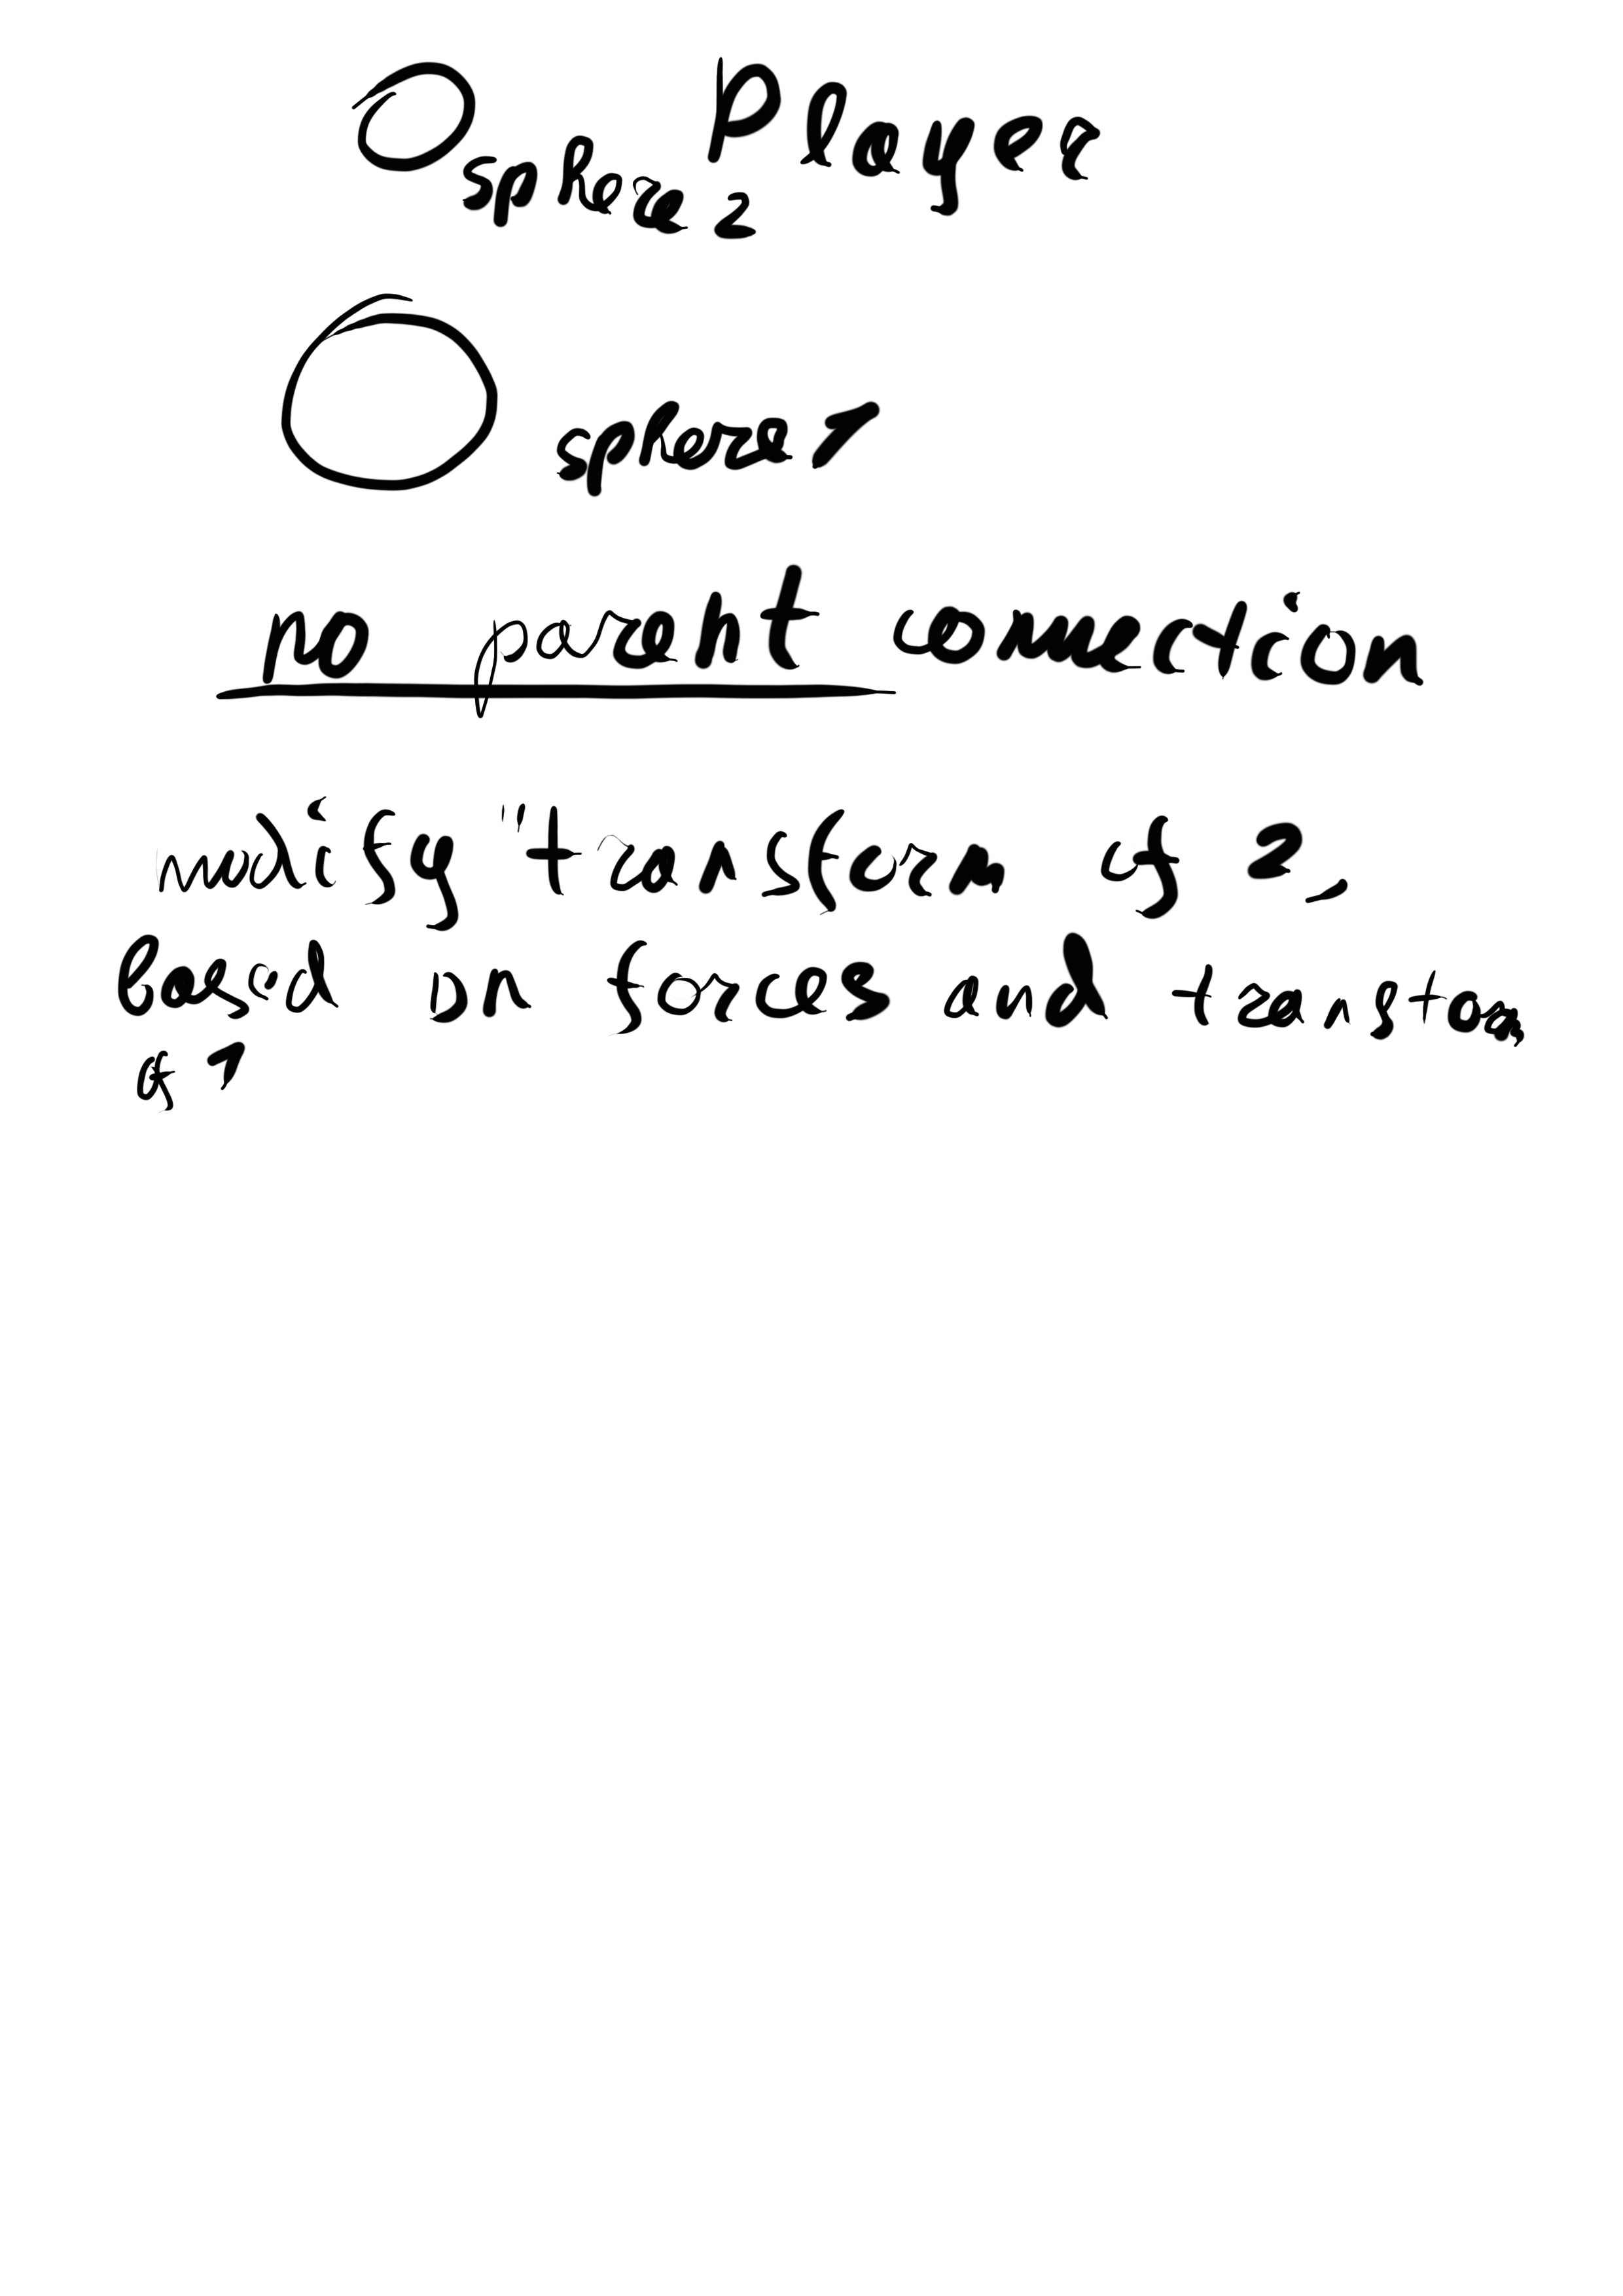 Player
sphere 2
sphere 1
no parent connection
modify "transform of 2
based on forces and transform
of 1